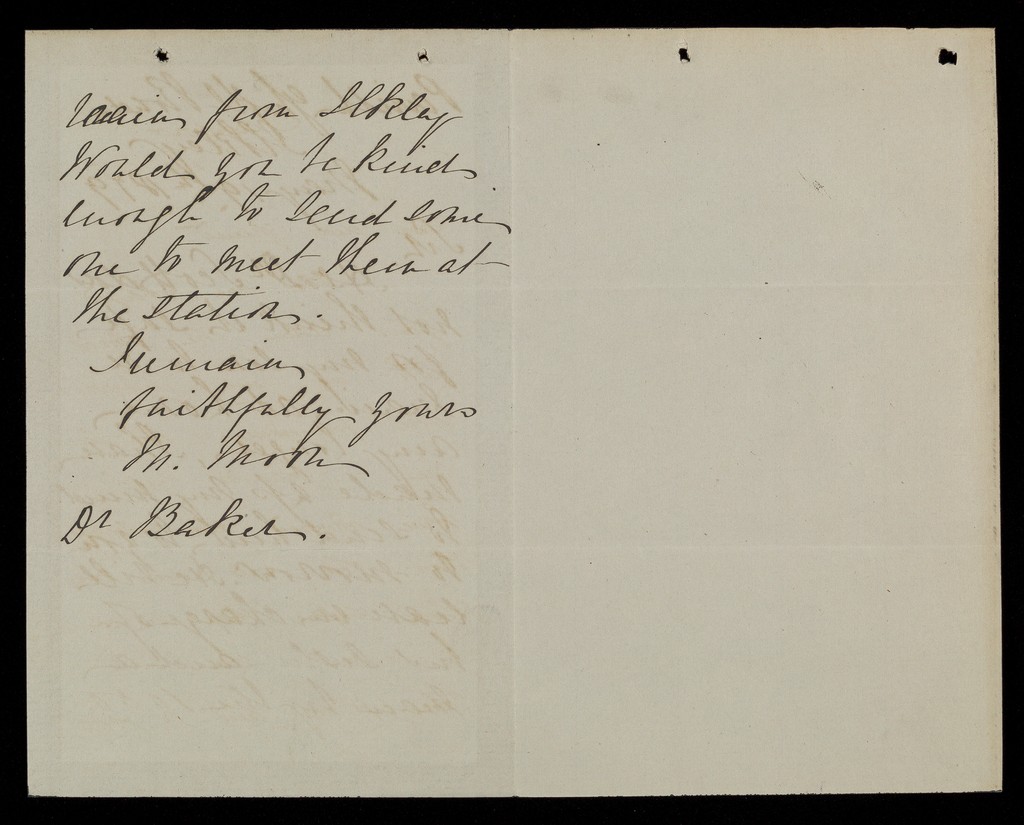 train from Ilkley
Would you be kind
enough to send some
one to meet them at
the station.
I remain
faithfully yours
M. Moon
Dr Baker.